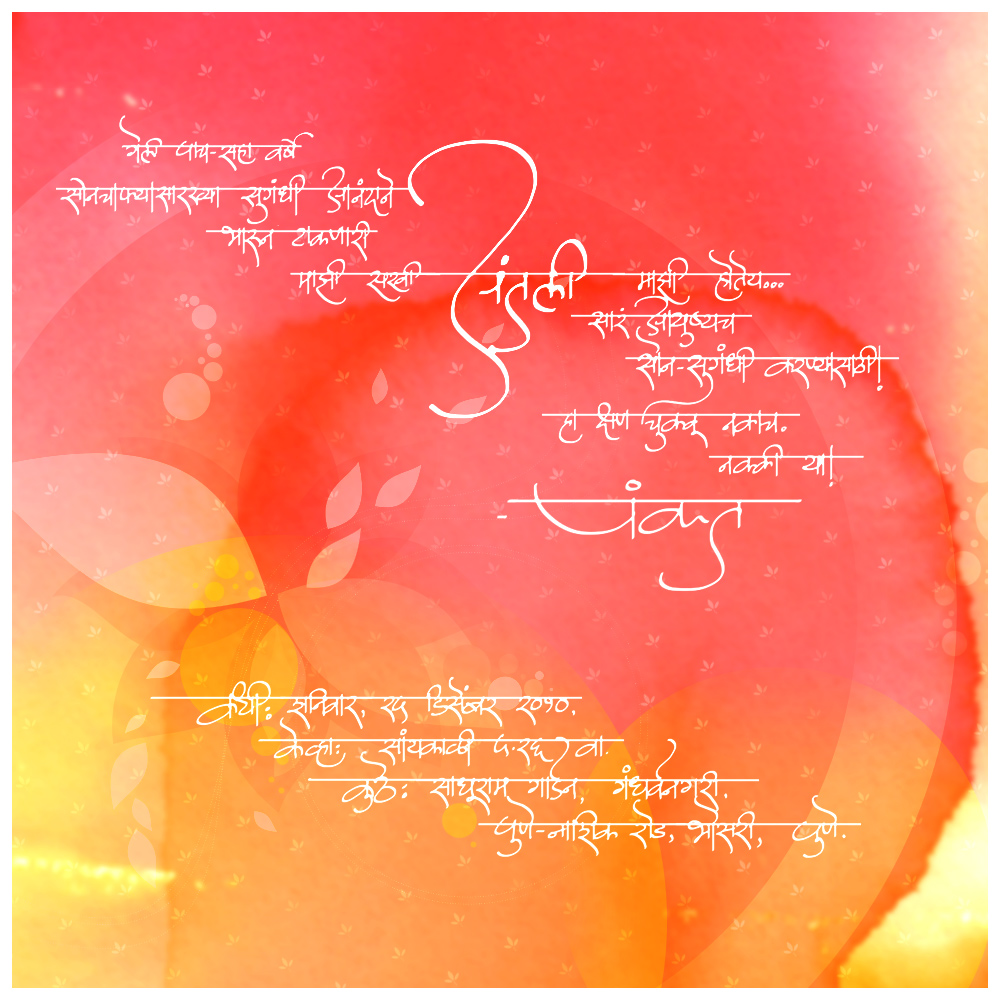 गेली पाच-सहा वर्षे
सोनचाफ्यासारख्या सुगंधी आनंदाने
भारुन टाकणारी
माझी सखी कुंतली माझी होतेय...
सारं आयुष्यच
सोन-सुगंधी करण्यासाठी!
हा क्षण चुकवू नकाच.
नक्की या!
- पंकज
कधी: शनिवार, २५ डिसेंबर २०१०.
केव्हा: सायंकाळी ५.२६ वा.
कुठे: साधूराम गार्डन, गंधर्वनगरी,
पुणे-नाशिक रोड, भोसरी, पुणे.